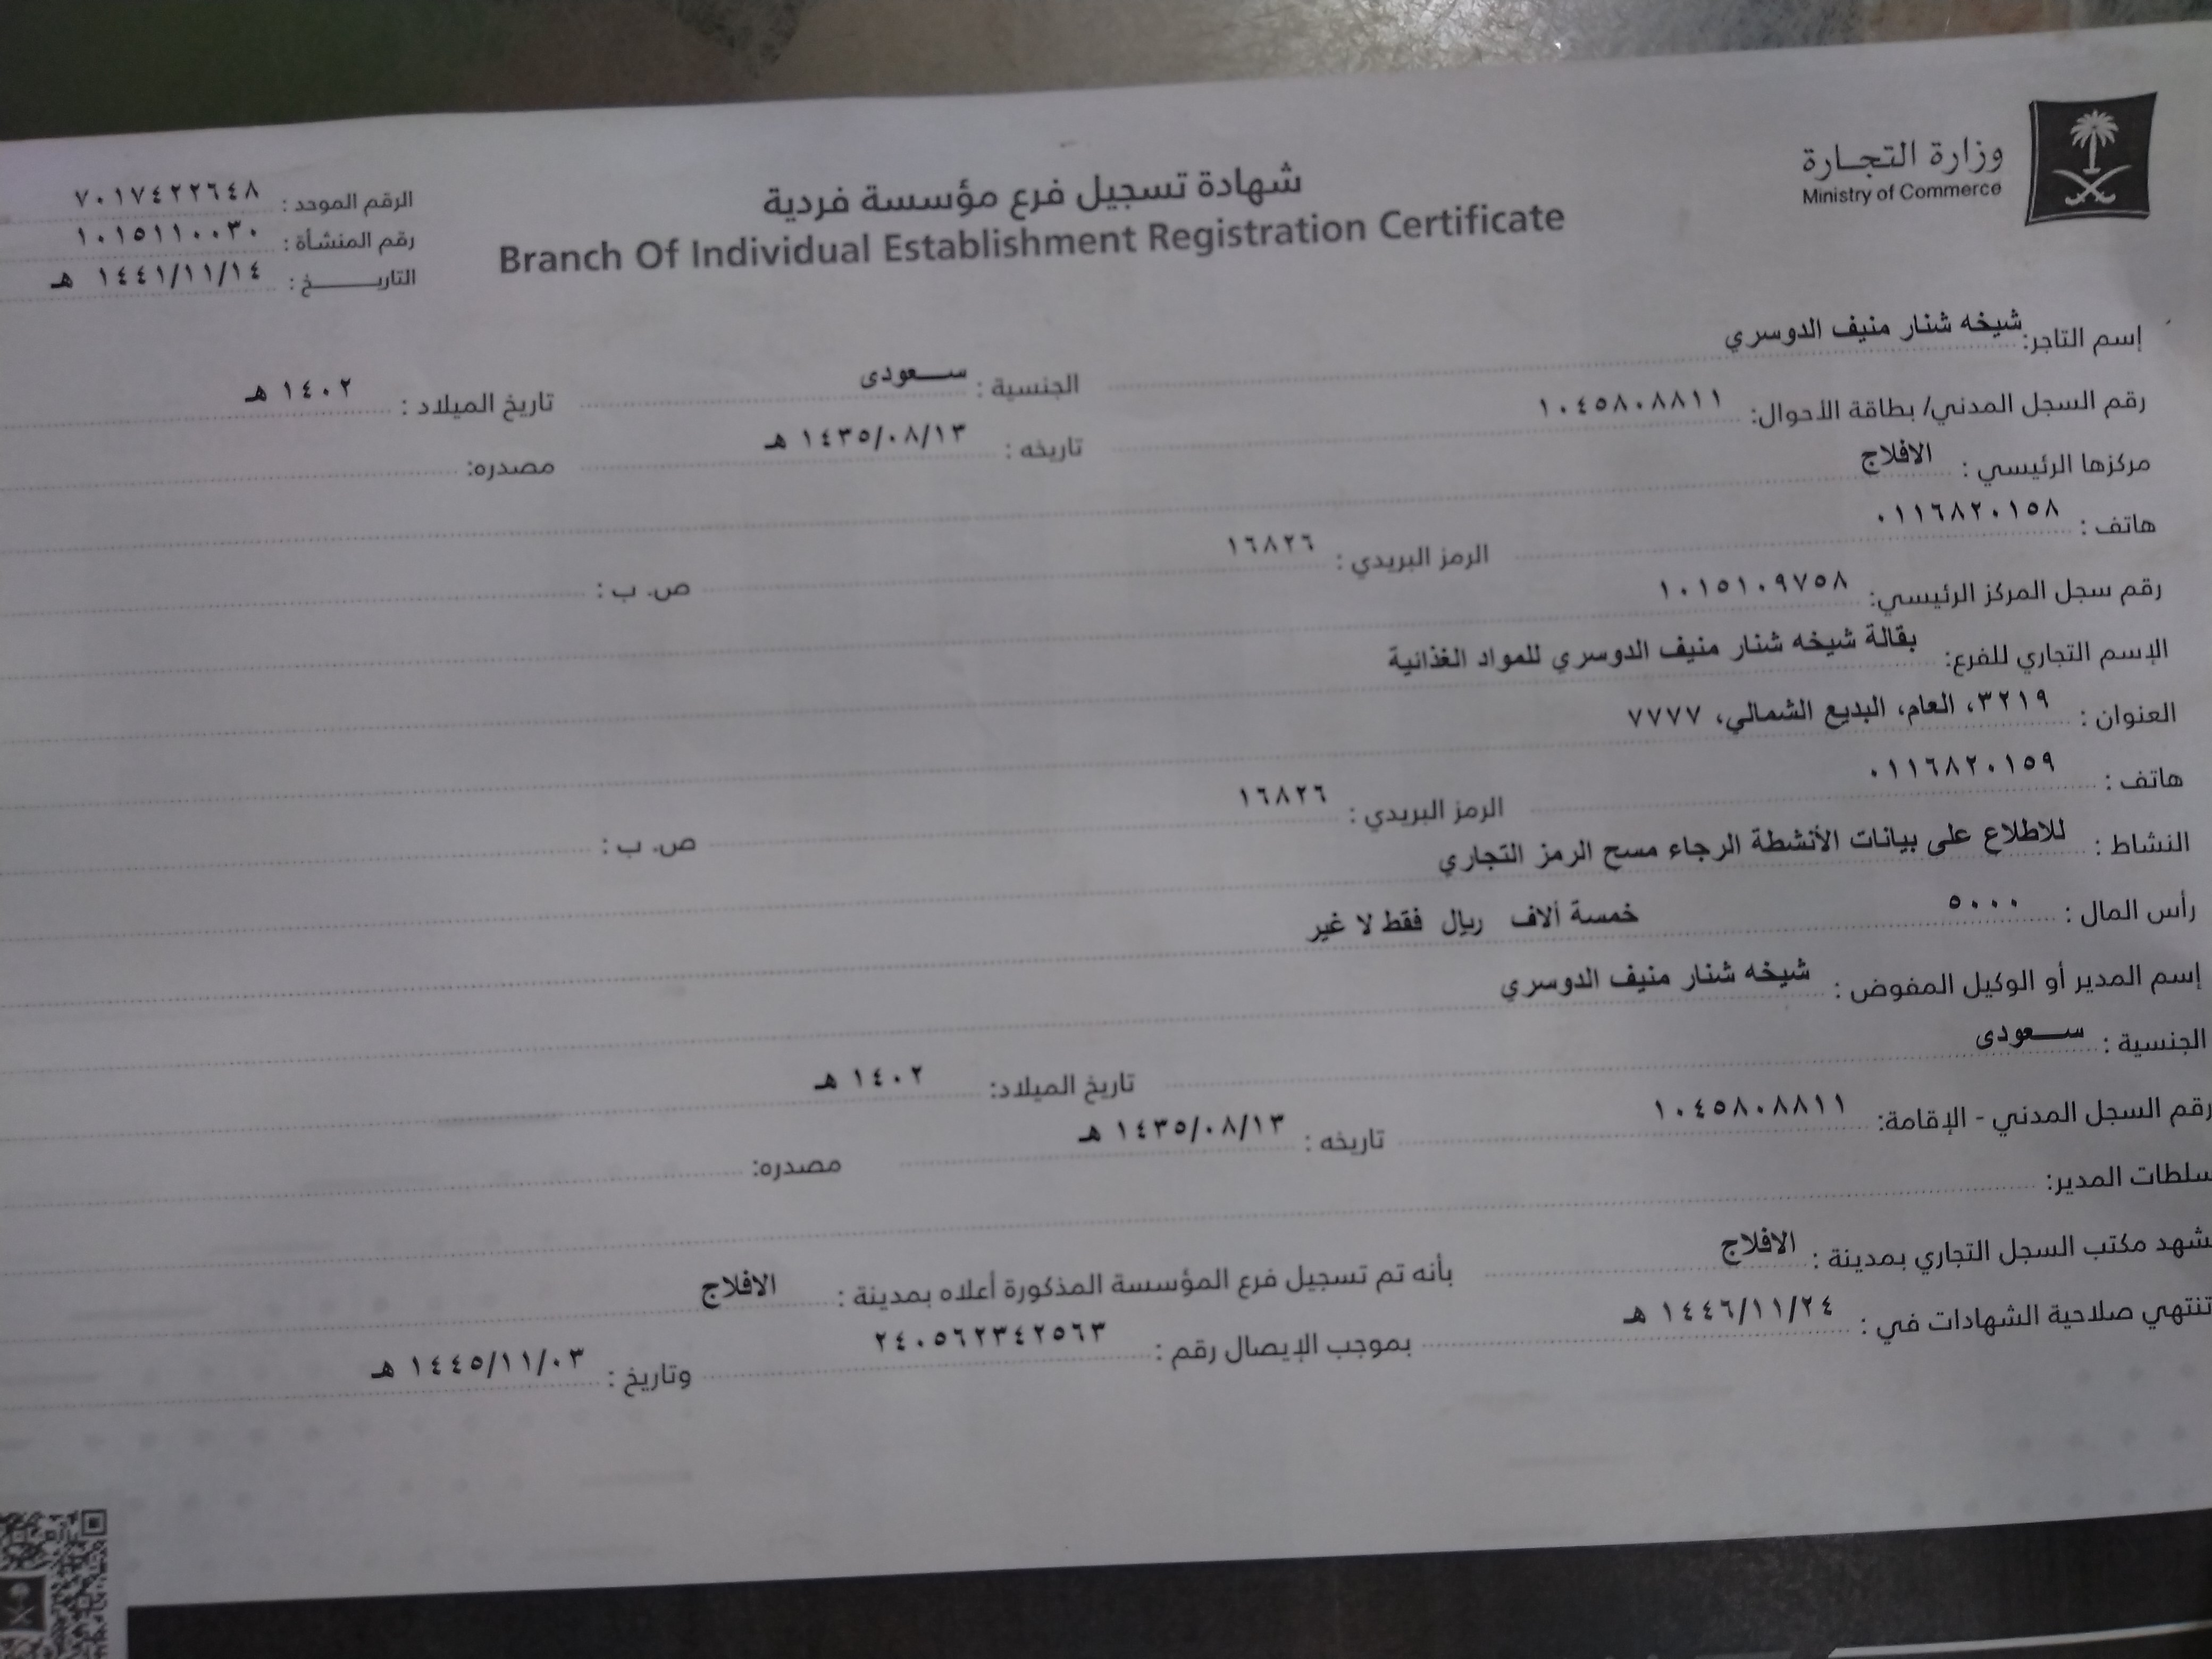 وزارة التجارة
Ministry of Commerce
شهادة تسجيل فرع مؤسسة فردية
Branch Of Individual Establishment Registration Certificate
الرقم الموحد : ٧٠١٧٤٢٢٦٤٨
رقم المنشأة : ١٠١٥١١٠٠٣٠
التاريــــــخ : ١٤٤١/١١/١٤ هـ
إسم التاجر: شيخه شنار منيف الدوسري
الجنسية : ســعودى تاريخ الميلاد : ١٤٠٢ هـ
رقم السجل المدني/ بطاقة الأحوال: ١٠٤٥٨٠٨٨١١ تاريخه : ١٤٣٥/٠٨/١٣ هـ مصدره:
مركزها الرئيسي : الافلاج
هاتف : ٠١١٦٨٢٠١٥٨ الرمز البريدي : ١٦٨٢٦ ص. ب :
رقم سجل المركز الرئيسي: ١٠١٥١٠٩٧٥٨
الإسم التجاري للفرع: بقالة شيخه شنار منيف الدوسري للمواد الغذائية
العنوان : ٣٢١٩، العام، البديع الشمالي، ٧٧٧٧
هاتف : ٠١١٦٨٢٠١٥٩ الرمز البريدي : ١٦٨٢٦ ص. ب :
النشاط : للاطلاع على بيانات الأنشطة الرجاء مسح الرمز التجاري
رأس المال : ٥٠٠٠ خمسة آلاف ريال فقط لا غير
إسم المدير أو الوكيل المفوض : شيخه شنار منيف الدوسري
الجنسية : ســعودى تاريخ الميلاد: ١٤٠٢ هـ
رقم السجل المدني - الإقامة: ١٠٤٥٨٠٨٨١١ تاريخه : ١٤٣٥/٠٨/١٣ هـ مصدره:
سلطات المدير:
شهد مكتب السجل التجاري بمدينة : الافلاج بأنه تم تسجيل فرع المؤسسة المذكورة أعلاه بمدينة : الافلاج
تنتهي صلاحية الشهادات في : ١٤٤٦/١١/٢٤ هـ بموجب الإيصال رقم : ٢٤٠٥٦٢٣٤٢٥٦٣ وتاريخ : ١٤٤٥/١١/٠٣ هـ